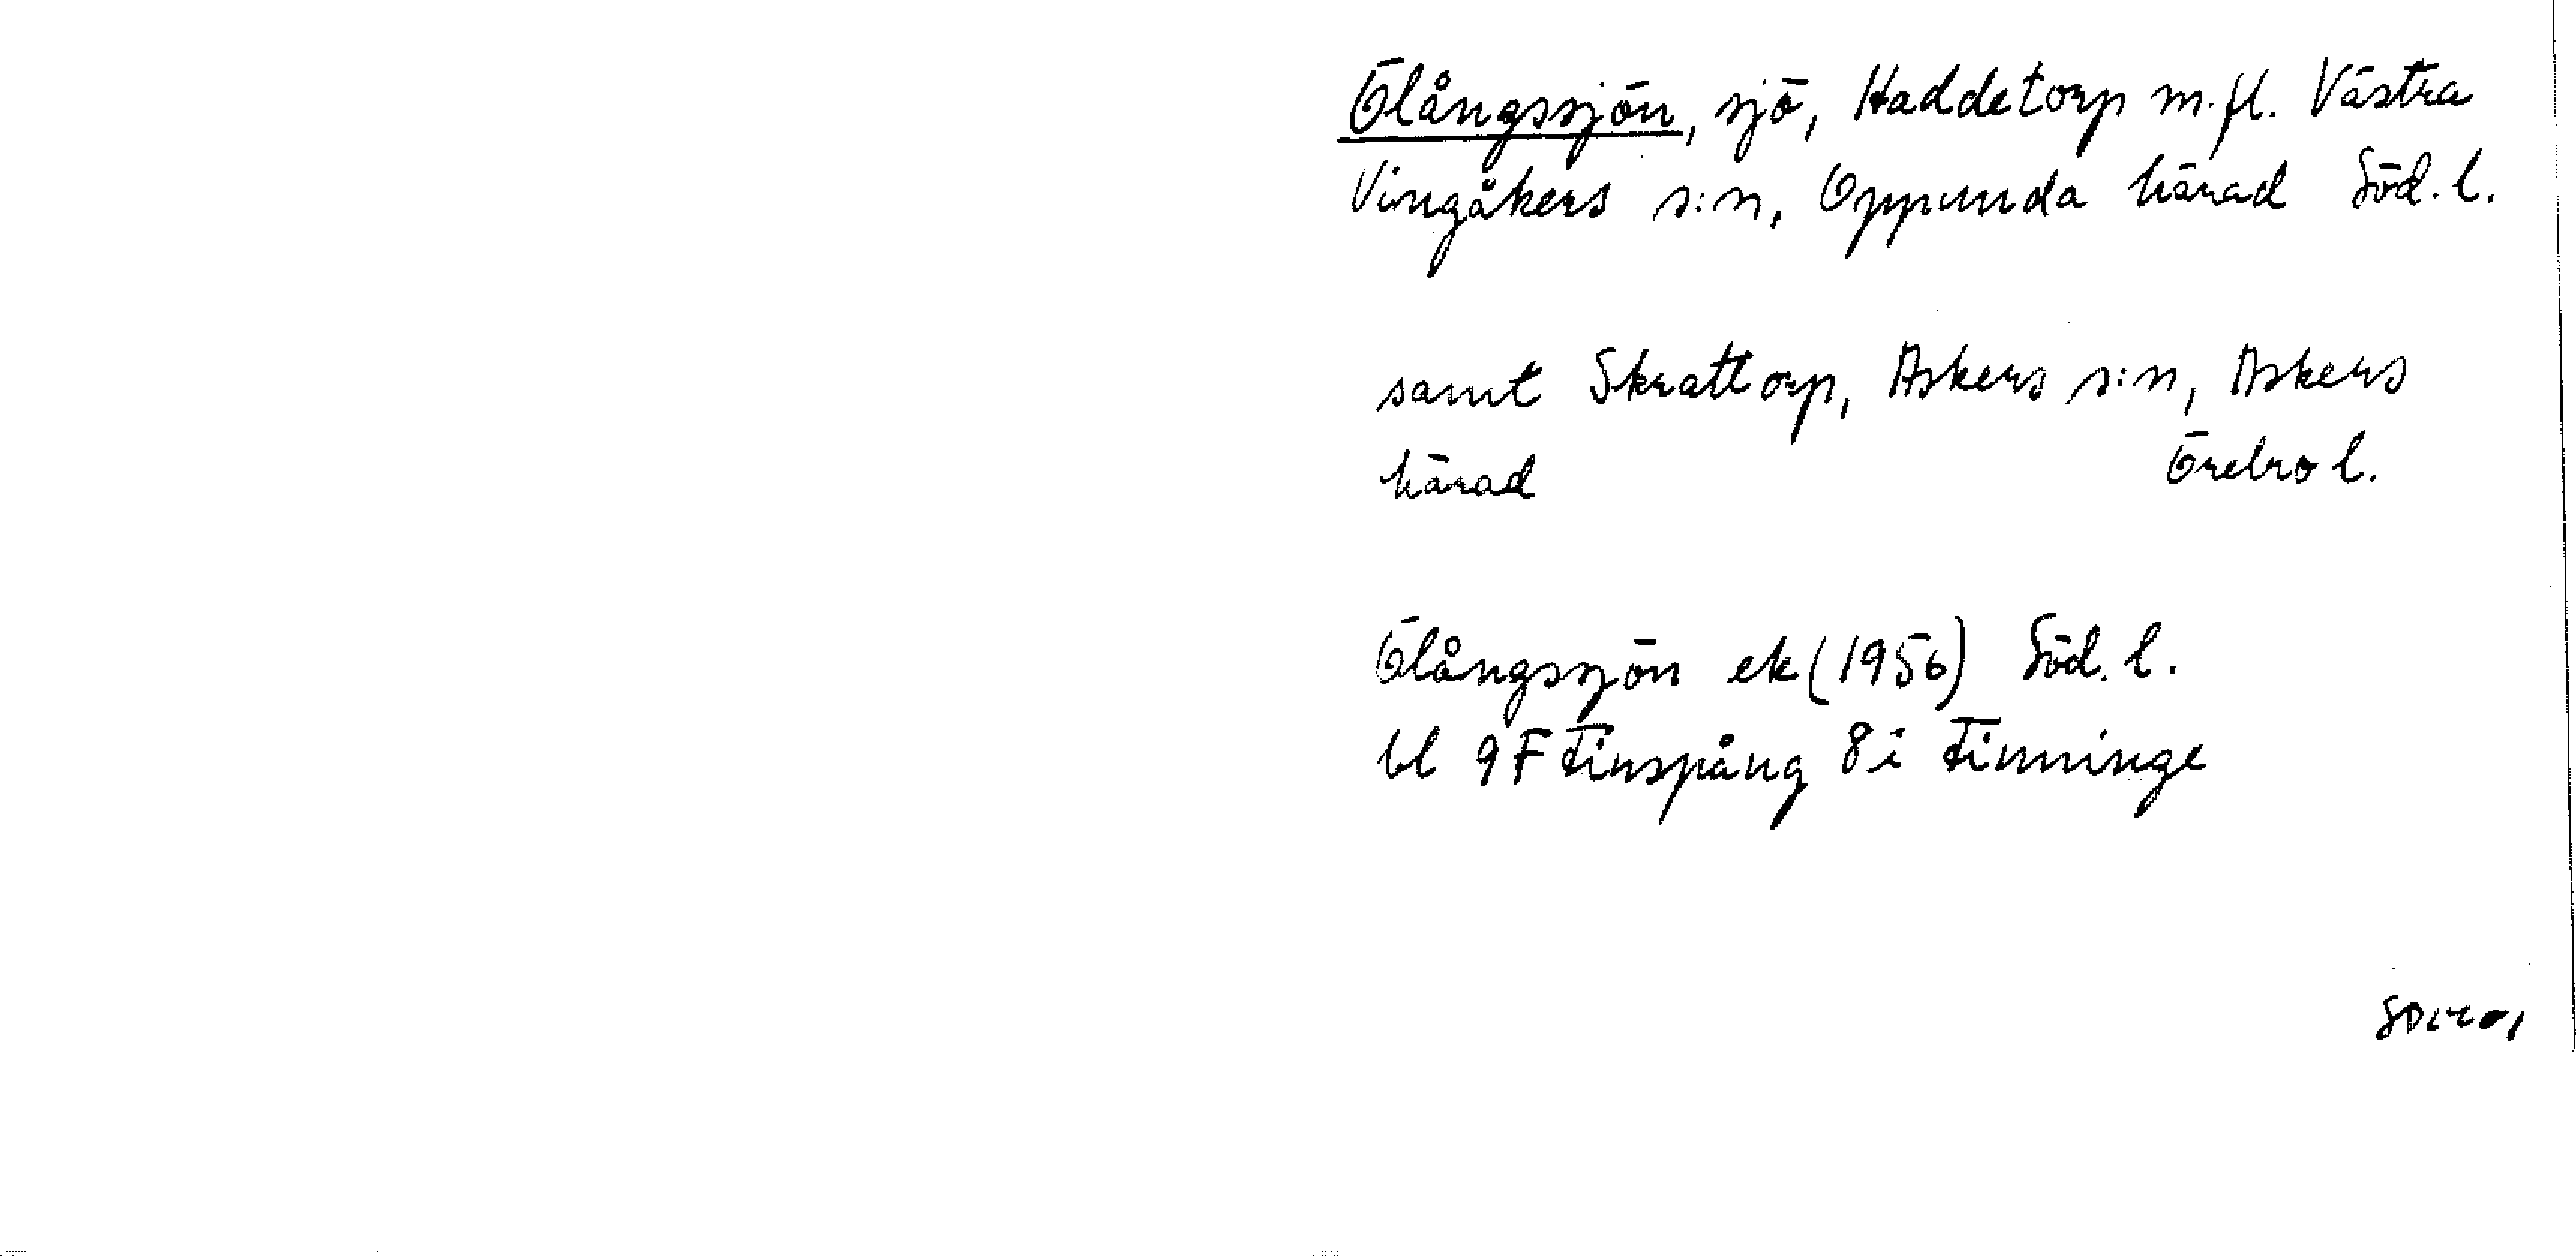 Ölångssjön, sjö, Haddetorp m.fl. Västra
Vingåkers s:n, Oppunda härad Söd. l.
samt Skrattorp, Askers s:n, Askers
härad Örebro l.
Ölångssjön ek (1956) Söd. l.
bl 9F Finspång 8i Finninge